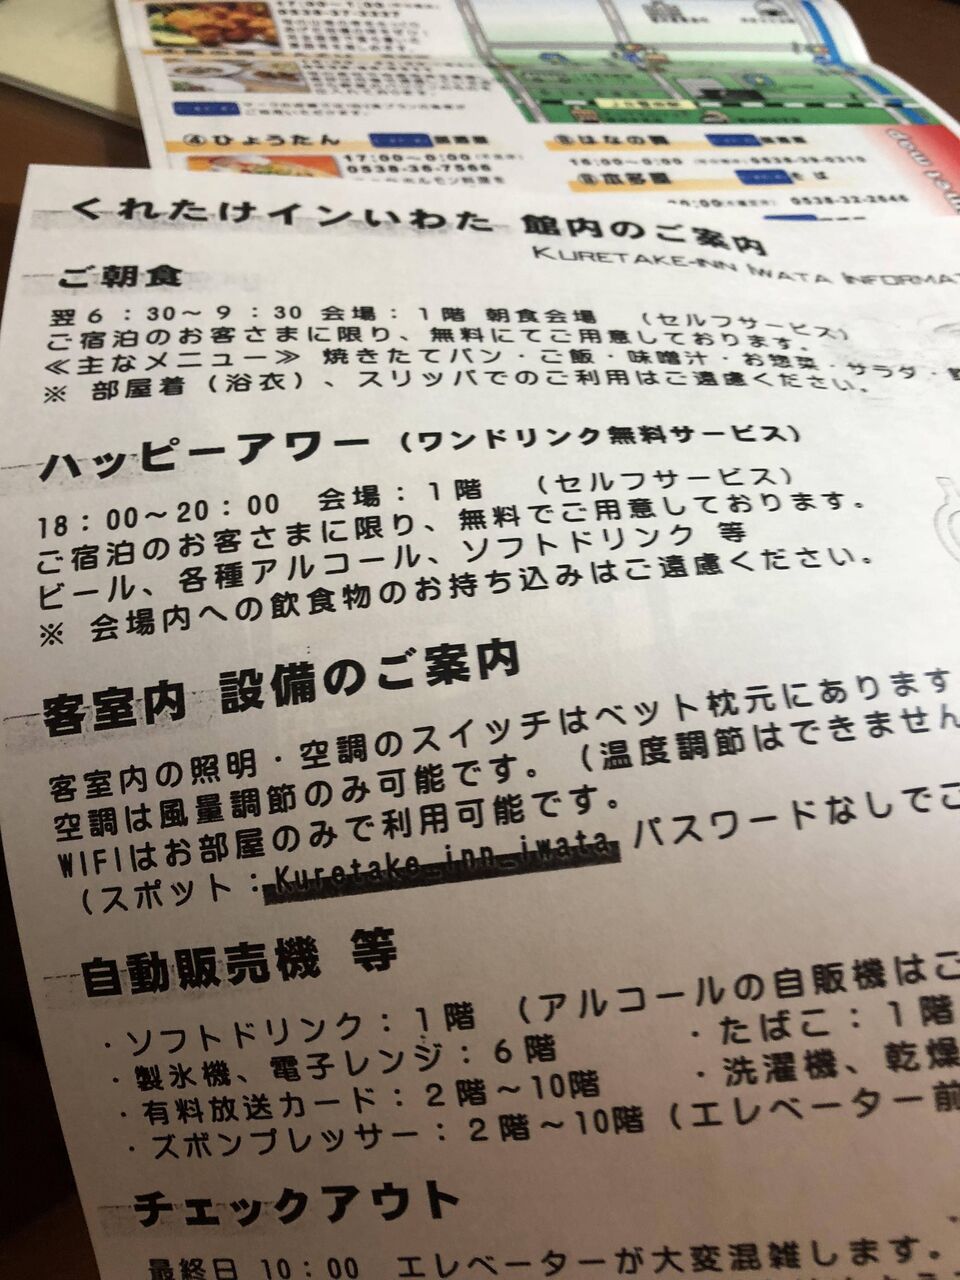 17:00～1:00
0538-37-3337
④ひょうたん
居酒屋
17:00～0:00
0538-36-7566
はなの舞
居酒屋
16:00～0:00
0538-39-0310
本多屋
そば
0538-32-2646
くれたけインいわた 館内のご案内
KURETAKE-INN IWATA INFORMAT
ご朝食
翌6：30～9：30 会場：1階 朝食会場 （セルフサービス）
ご宿泊のお客さまに限り、無料にてご用意しております。
≪主なメニュー≫ 焼きたてパン・ご飯・味噌汁・お惣菜・サラダ・
※ 部屋着（浴衣）、スリッパでのご利用はご遠慮ください。
ハッピーアワー（ワンドリンク無料サービス）
18：00～20：00 会場：1階 （セルフサービス）
ご宿泊のお客さまに限り、無料でご用意しております。
ビール、各種アルコール、ソフトドリンク 等
※ 会場内への飲食物のお持ち込みはご遠慮ください。
客室内 設備のご案内
客室内の照明・空調のスイッチはベット枕元にあります
空調は風量調節のみ可能です。（温度調節はできません
WIFIはお部屋のみで利用可能です。
（スポット：Kuretake_inn_iwata パスワードなしでご
自動販売機 等
・ソフトドリンク：1階 （アルコールの自販機はご
・たばこ：1階
・製氷機、電子レンジ：6階
・洗濯機、乾燥
・有料放送カード：2階～10階
・ズボンプレッサー：2階～10階（エレベーター前
チェックアウト
最終日 10：00 エレベーターが大変混雑します。